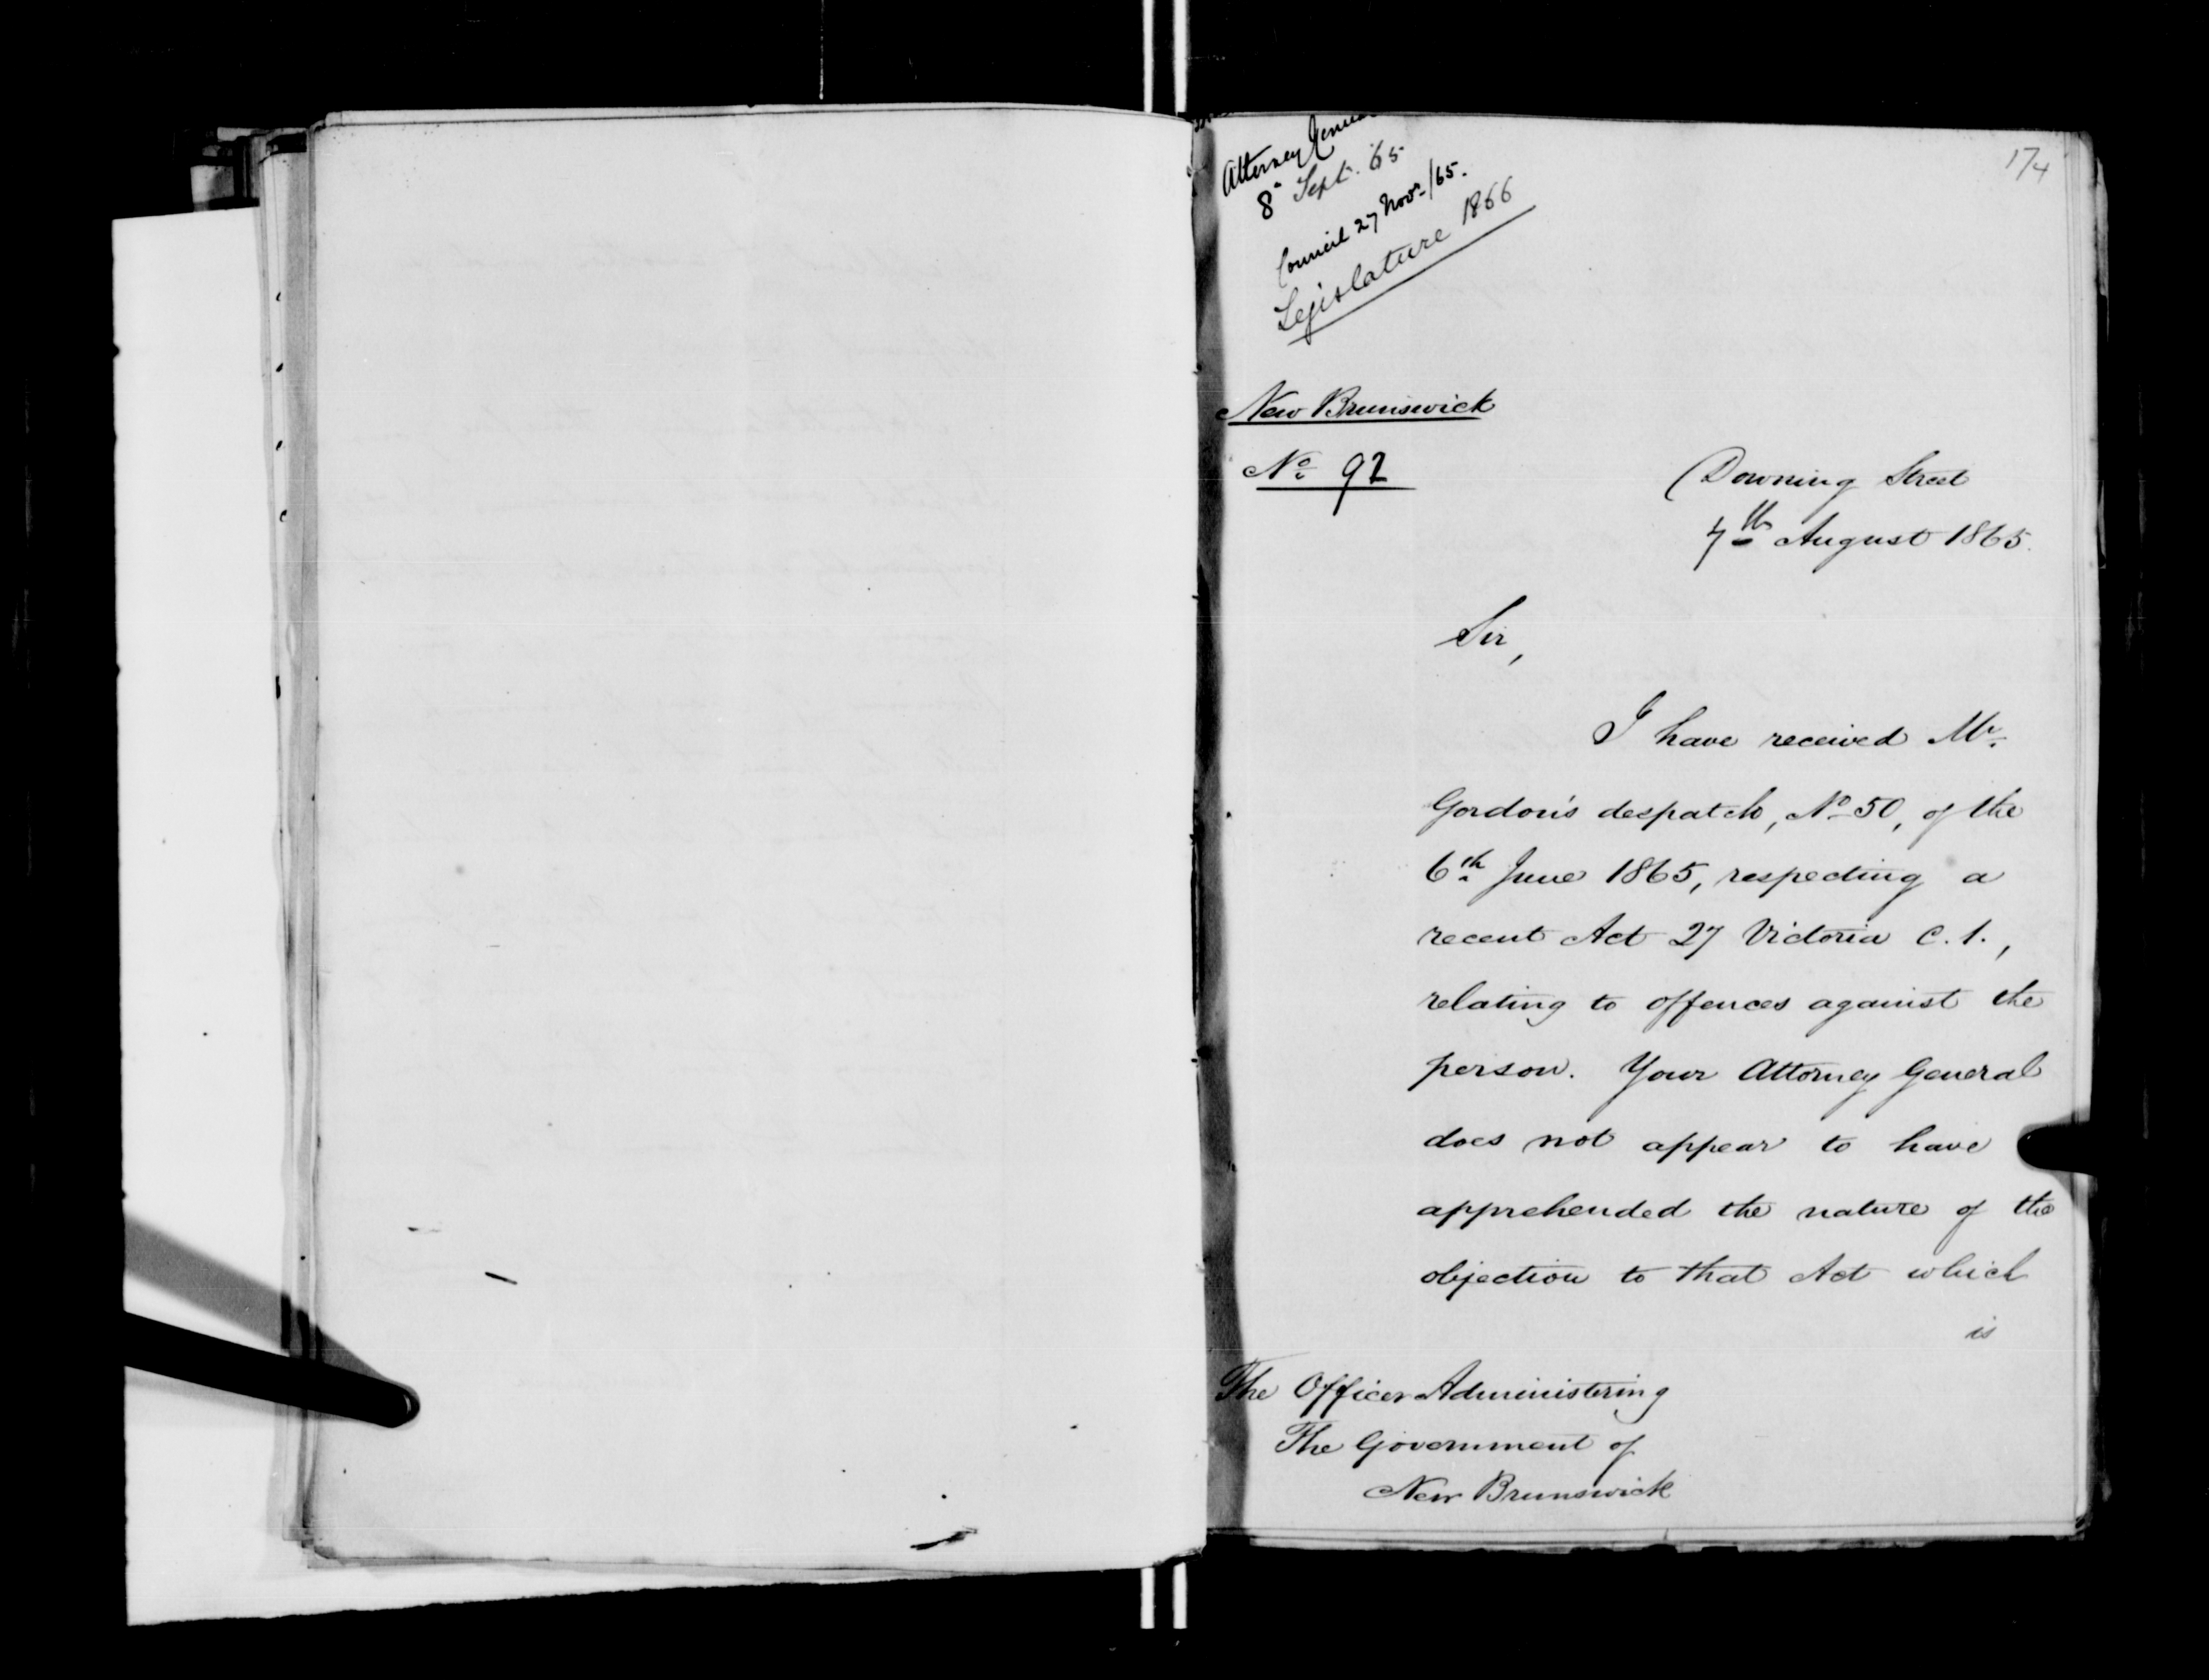 174
Attorney General
8 Sept. 65
Council 27 Novr /65.
Legislature 1866
New Brunswick
No 92
Downing Street
7th August 1865.
Sir,
I have received Mr.
Gordon's despatch, No 50, of the
6th June 1865, respecting a
recent Act 27 Victoria C. 1.,
relating to offences against the
person. Your Attorney General
does not appear to have
apprehended the nature of the
objection to that Act which
is
The Officer Administering
The Government of
New Brunswick